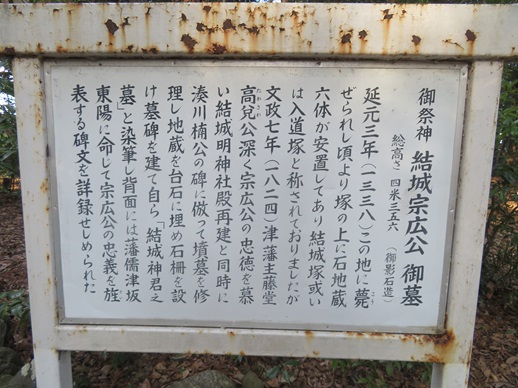 御祭神 結城宗広公 御墓
総高さ 四米三五六 (御影石造)
延元三年(一三三八)この地に薨
こう
ぜられし頃より塚の上に石地蔵
六体が安置してあり結城塚或い
は入道塚と称されておりましたが
文政七年(一八二四)津藩主藤堂
高兌公深く宗広公の忠徳を慕
たかさわ
い結城明神社殿再建と同時に
湊川楠公の碑に倣って墳墓を修
理し地蔵を台石に埋め石柵を設
け墓碑を建て自ら「結城神君之
墓」と染筆し背面には藩儒津坂
東陽に命じて宗広公の忠義を旌
表する碑文を詳録せしめられた